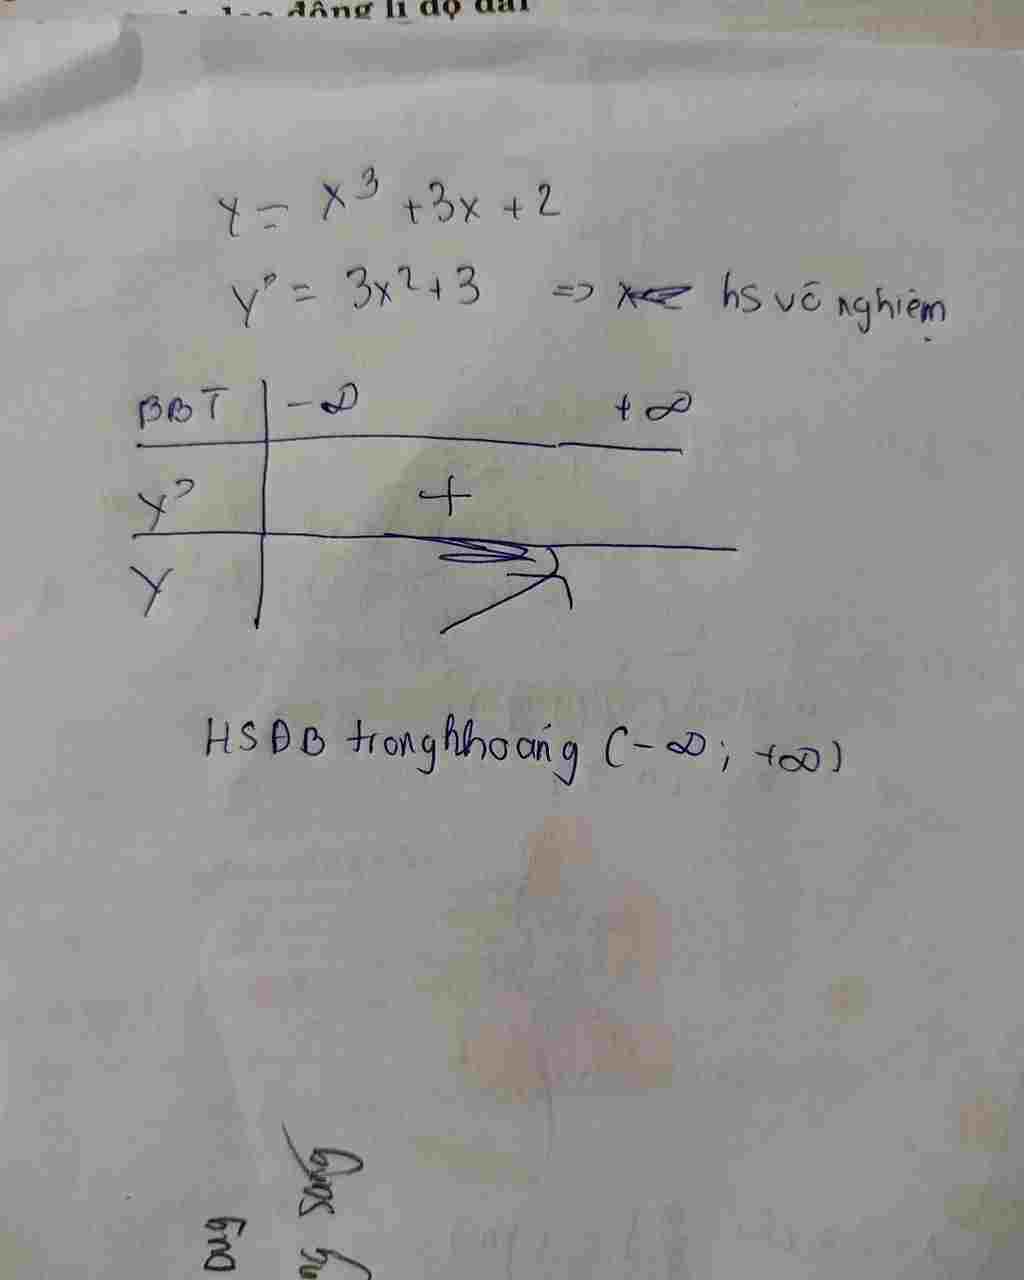 động lí độ dài
y = x³ + 3x + 2
y' = 3x² + 3 => hs vô nghiệm
BBT -∞ +∞
y' +
y
HSĐB trong khoảng (-∞; +∞)
sóng
Dùng